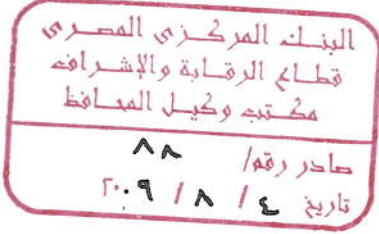 البنك المركزى المصرى
قطاع الرقابة والإشراف
مكتب وكيل المحافظ
صادر رقم/ ٨٨
تاريخ ٤ / ٨ / ٢٠٠٩